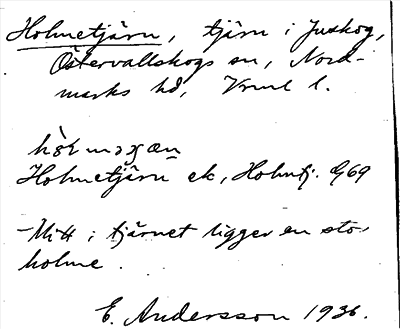 Holmetjärn, tjärn i Juskog,
Östervallskogs sn, Nord-
marks hd, Vrml l.
Holmetjärn ek, Holmtj. G69
Mitt i tjärnet ligger en stor
holme.
E. Andersson 1936.